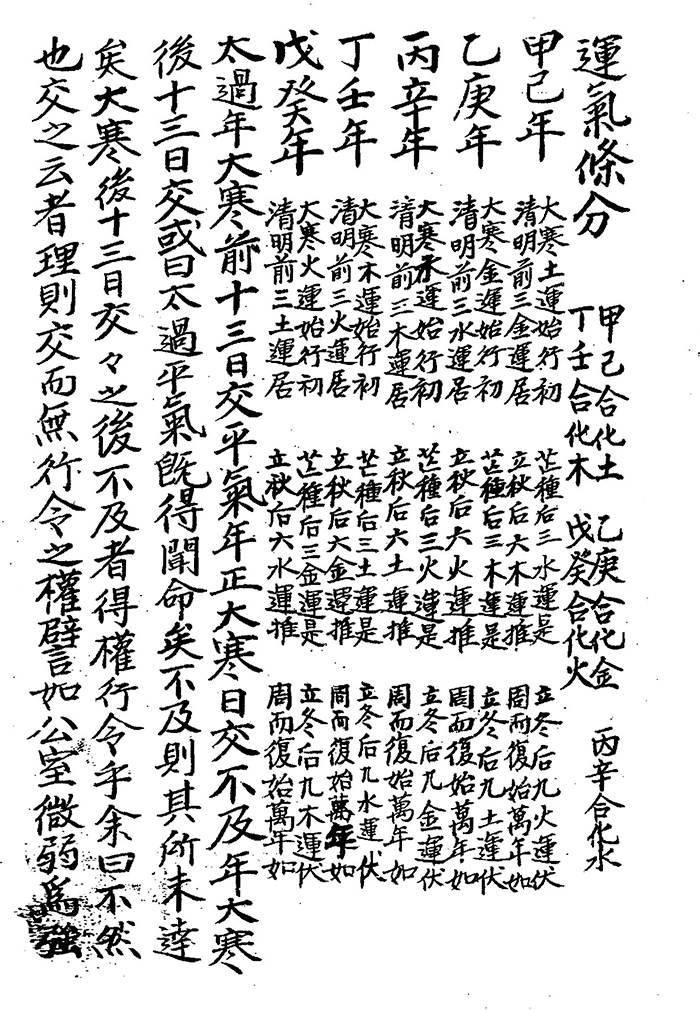 運氣條分
甲己合化土 乙庚合化金 丙辛合化水
丁壬合化木 戊癸合化火
甲己年
大寒土運始行初 芒種后三水運是 立冬后九火運伏
清明前三金運居 立秋后六木運推 周而復始萬年如
乙庚年
大寒金運始行初 芒種后三木運是 立冬后九土運伏
清明前三水運居 立秋后六火運推 周而復始萬年如
丙辛年
大寒水運始行初 芒種后三火運是 立冬后九金運伏
清明前三木運居 立秋后六土運推 周而復始萬年如
丁壬年
大寒木運始行初 芒種后三土運是 立冬后九水運伏
清明前三火運居 立秋后六金運推 周而復始萬年如
戊癸年
大寒火運始行初 芒種后三金運是 立冬后九木運伏
清明前三土運居 立秋后六水運推 周而復始萬年如
太過年大寒前十三日交平氣年正大寒日交不及年大寒
後十三日交或曰太過平氣旣得聞命矣不及則其所未達
矣大寒後十三日交々之後不及者得權行令乎余曰不然
也交之云者理則交而無行令之權譬如公室微弱爲強